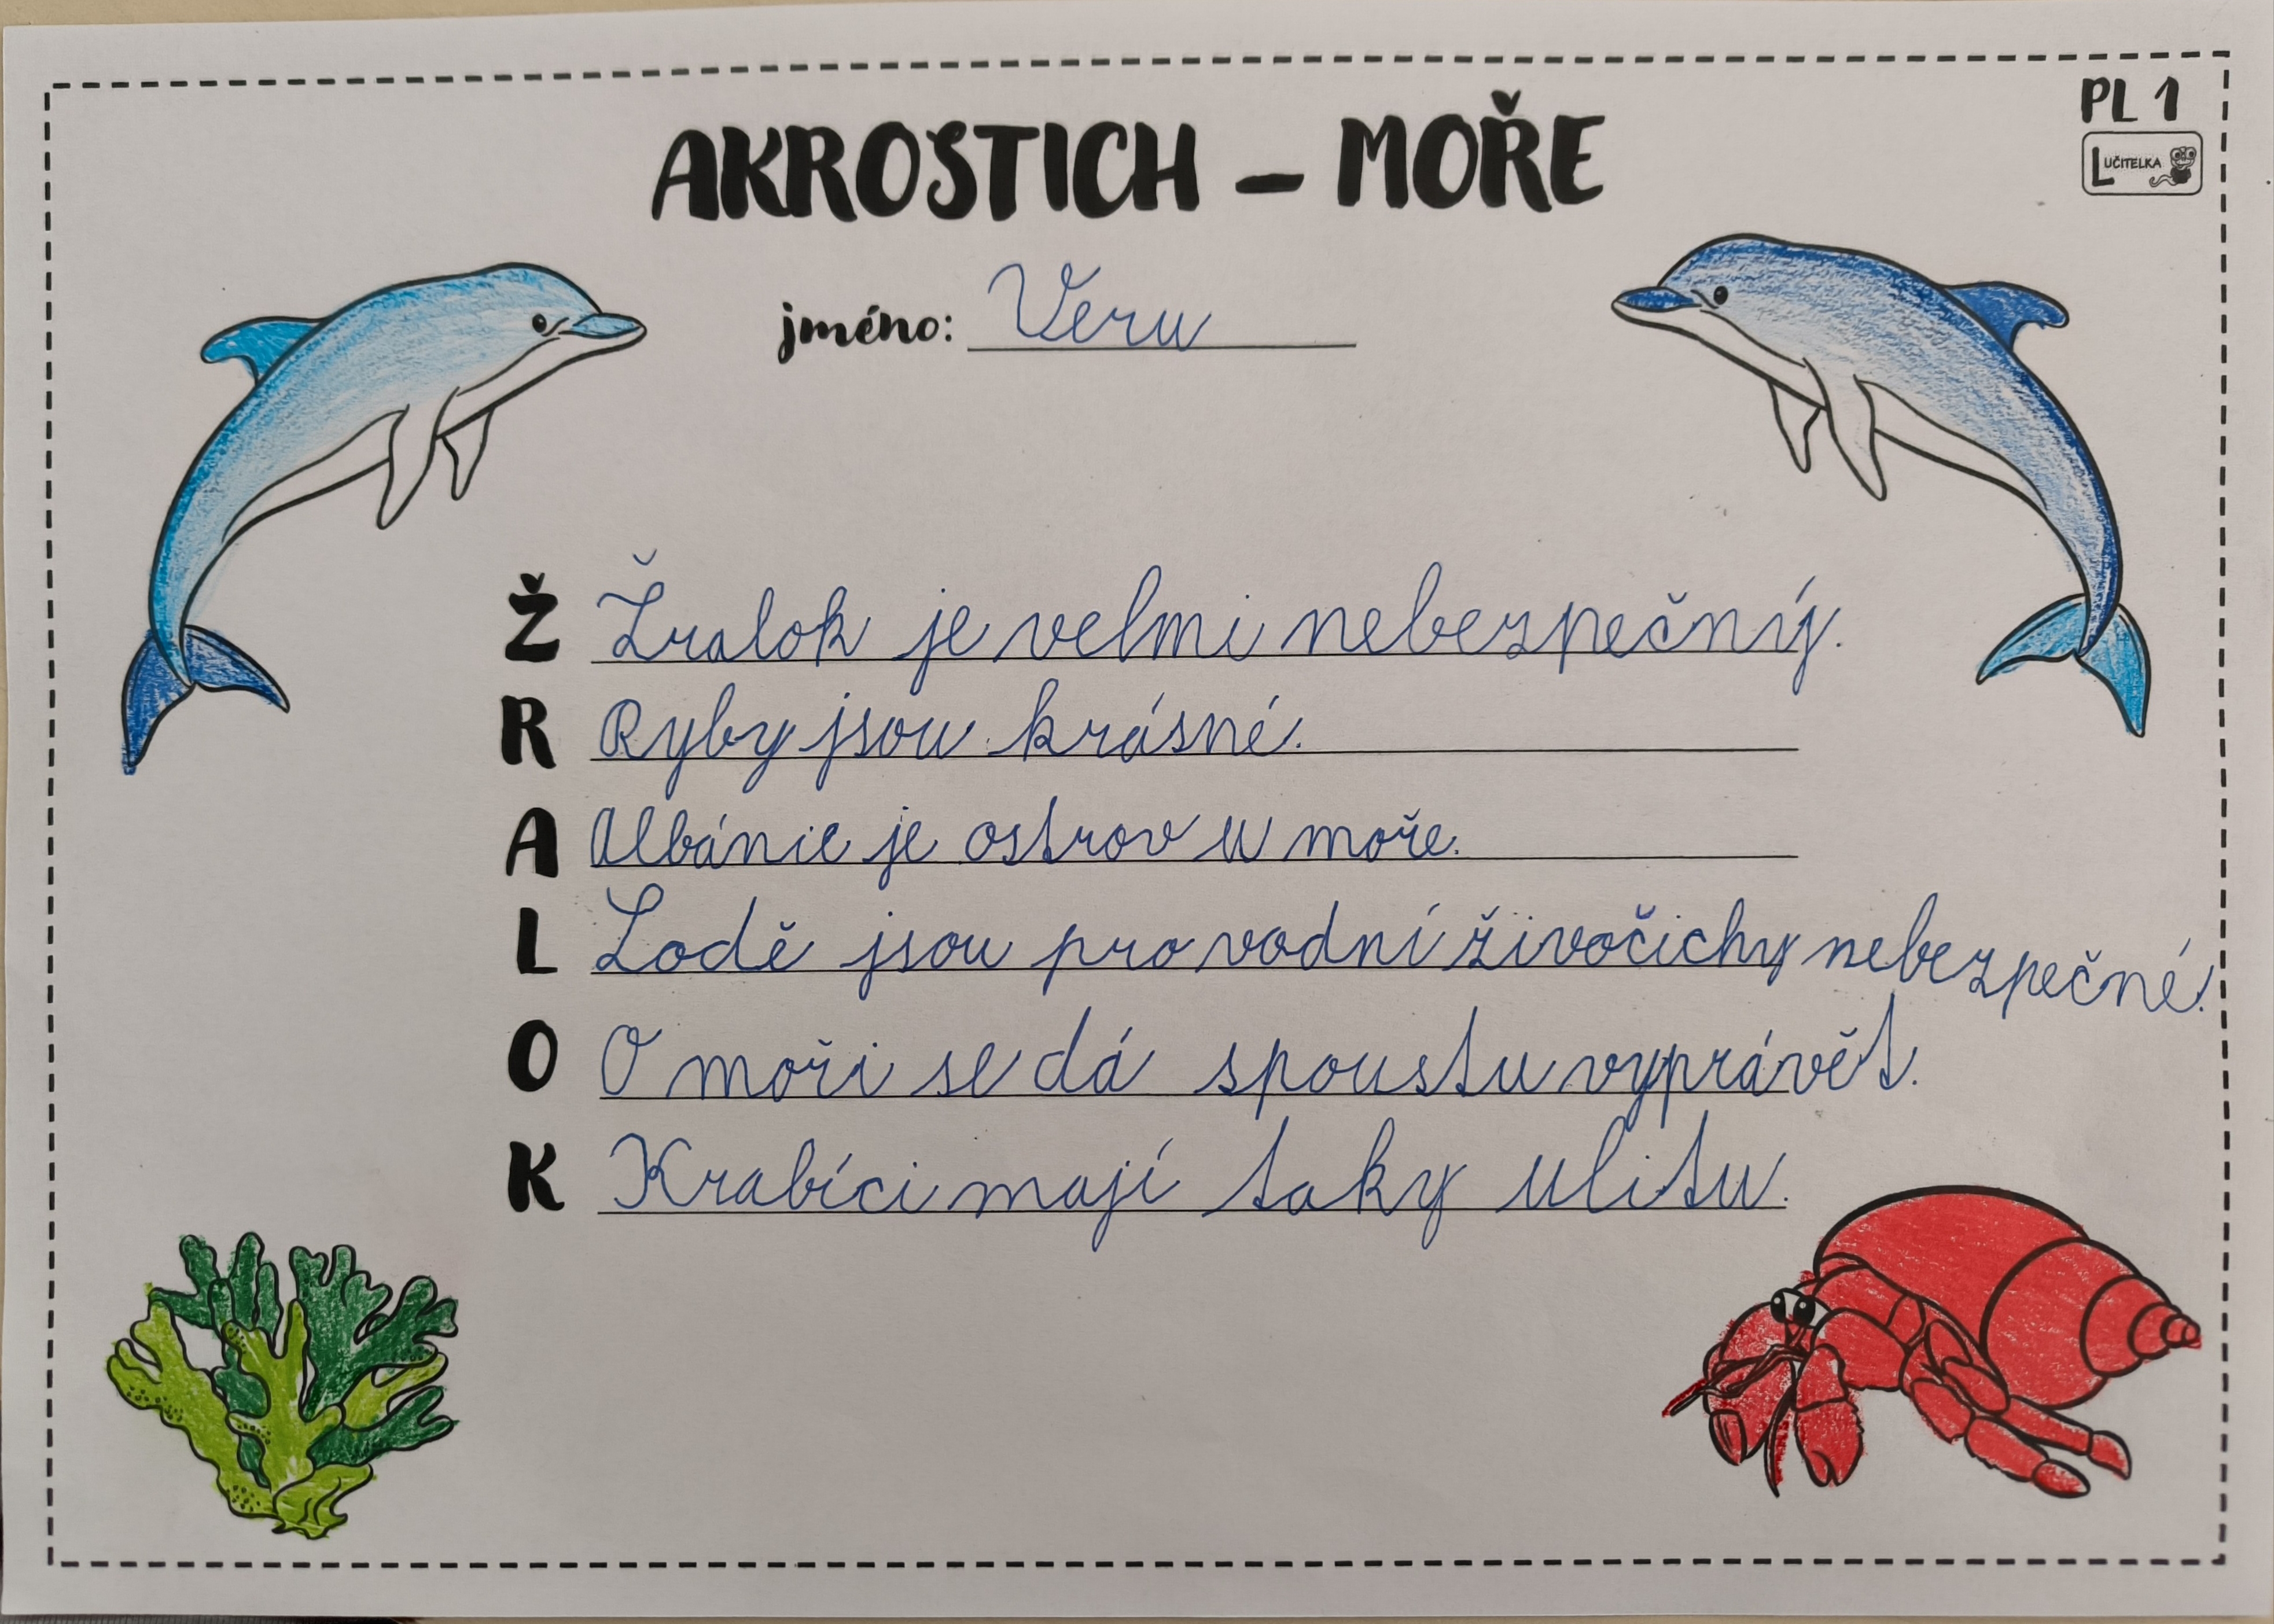 PL 1
LUČITELKA
AKROSTICH – MOŘE
jméno: Veru
Ž Žralok je velmi nebezpečný.
R Ryby jsou krásné.
A Albánie je ostrov u moře.
L Lodě jsou pro vodní živočichy nebezpečné.
O O moři se dá spoustu vyprávět.
K Krabíci mají taky ulitu.